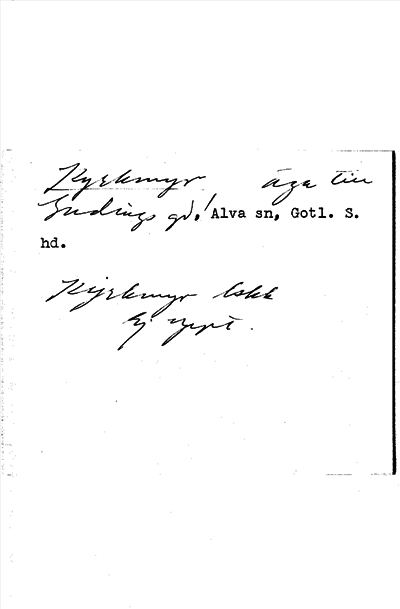 Kyrkmyr äga till
Gudings gd, Alva sn, Gotl. S.
hd.
Kyrkmyr lskk
Ej uppt.